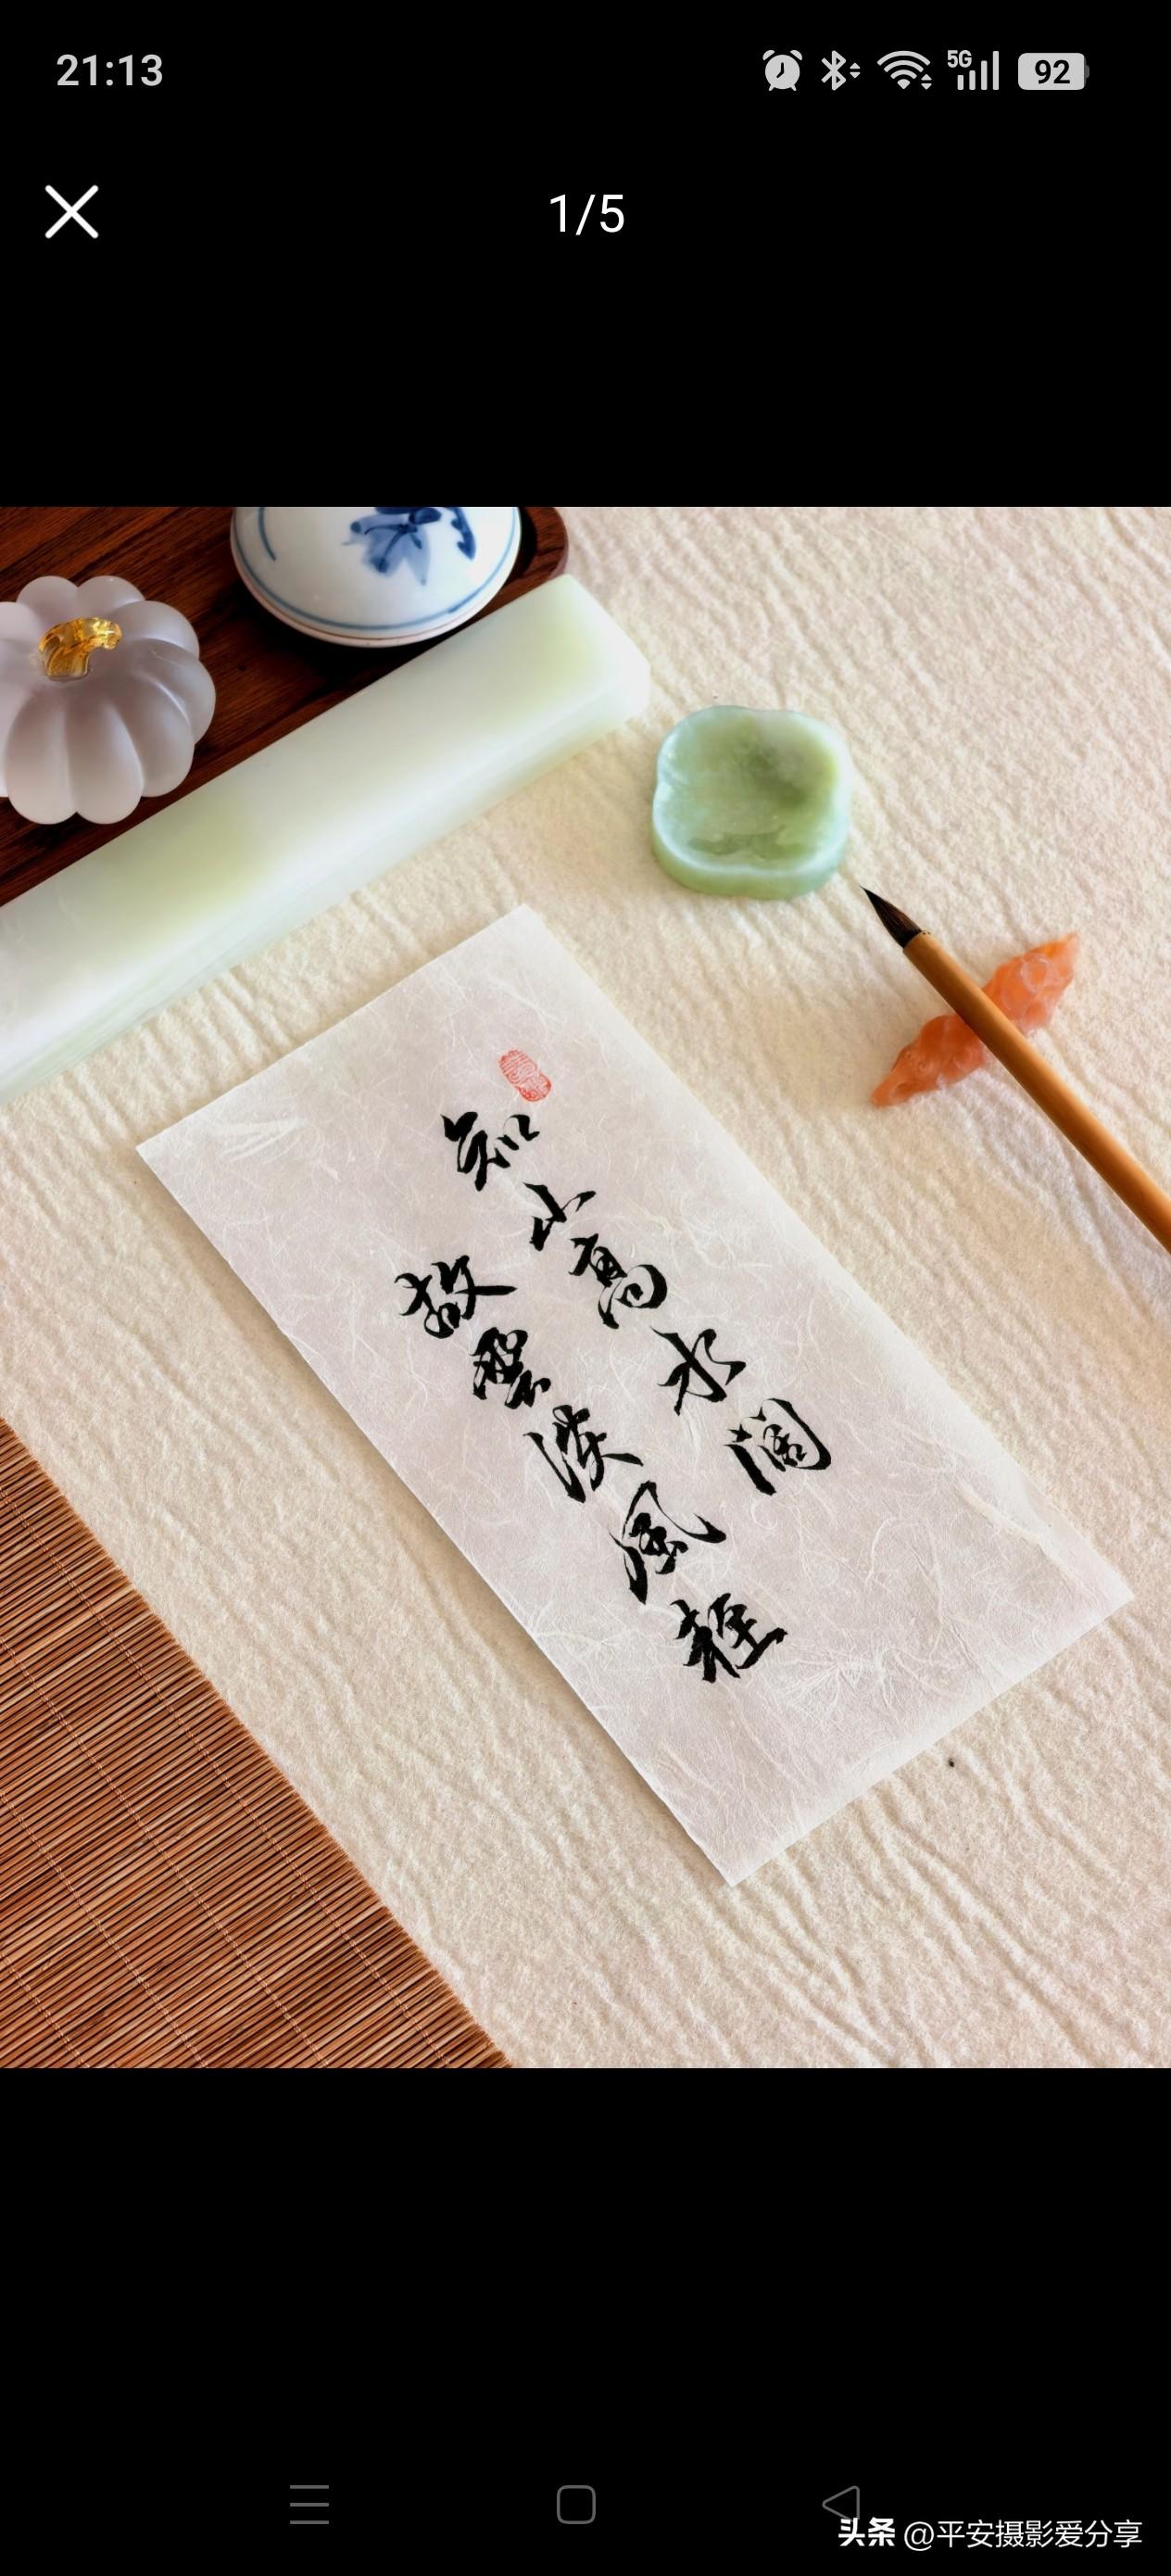 21:13
5G
92
1/5
知山高水阔
故云淡风轻
头条 @平安摄影爱分享